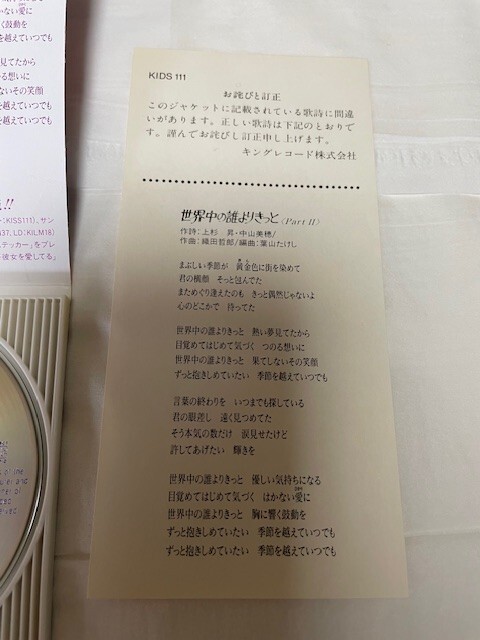 KIDS 111
お詫びと訂正
このジャケットに記載されている歌詩に間違
いがあります。正しい歌詩は下記のとおりで
す。謹んでお詫びし訂正申し上げます。
キングレコード株式会社
世界中の誰よりきっと〈Part II〉
作詩:上杉 昇・中山美穂/
作曲:織田哲郎/編曲:葉山たけし
まぶしい季節が 黄金色に街を染めて
君の横顔 そっと包んでた
まためぐり逢えたのも きっと偶然じゃないよ
心のどこかで 待ってた
世界中の誰よりきっと 熱い夢見てたから
目覚めてはじめて気づく つのる想いに
世界中の誰よりきっと 果てしないその笑顔
ずっと抱きしめていたい 季節を越えていつでも
言葉の終わりを いつまでも探している
君の眼差し 遠く見つめてた
そう本気の数だけ 涙見せたけど
許してあげたい 輝きを
世界中の誰よりきっと 優しい気持ちになる
目覚めてはじめて気づく はかない愛に
世界中の誰よりきっと 胸に響く鼓動を
ずっと抱きしめていたい 季節を越えていつでも
ずっと抱きしめていたい 季節を越えていつでも
かない愛に
く鼓動を
を越えていつでも
見てたから
る想いに
しないその笑顔
を越えていつでも
を越えていつでも
!!
:KISS111)、サン
37、LD:KILM18)
テッカー」をプレ
彼女を愛してる」